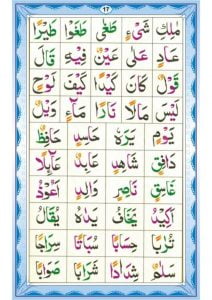 ١٢
مُلِكَ شَيْءٍ طَغٰى طَغَوْا طَيْرًا
عَادٍ عَلٰى عَيْنٍ فِيْهِ قَالَ
قَوْلَ كَانَ كَيْدًا كَيْفَ لَوْحٍ
لَيْسَ مَالًا نَارًا مَآءٍ وَيْلٌ
يَوْمٍ يَرَهٗ حَاسِدٍ حَافِظٌ
دَافِقٍ شَاهِدٍ عَابِدٌ عَآئِلًا
غَاسِقٍ نَاصِرٍ وَالِدٍ اَعُوْذُ
اَكِيْدُ يَخَافُ يَدَاهُ يُقَالُ
تُرَابًا حِسَابًا سُبَاتًا سِرَاجًا
سَلٰمٌ شِدَادًا شَرَابًا صَوَابًا